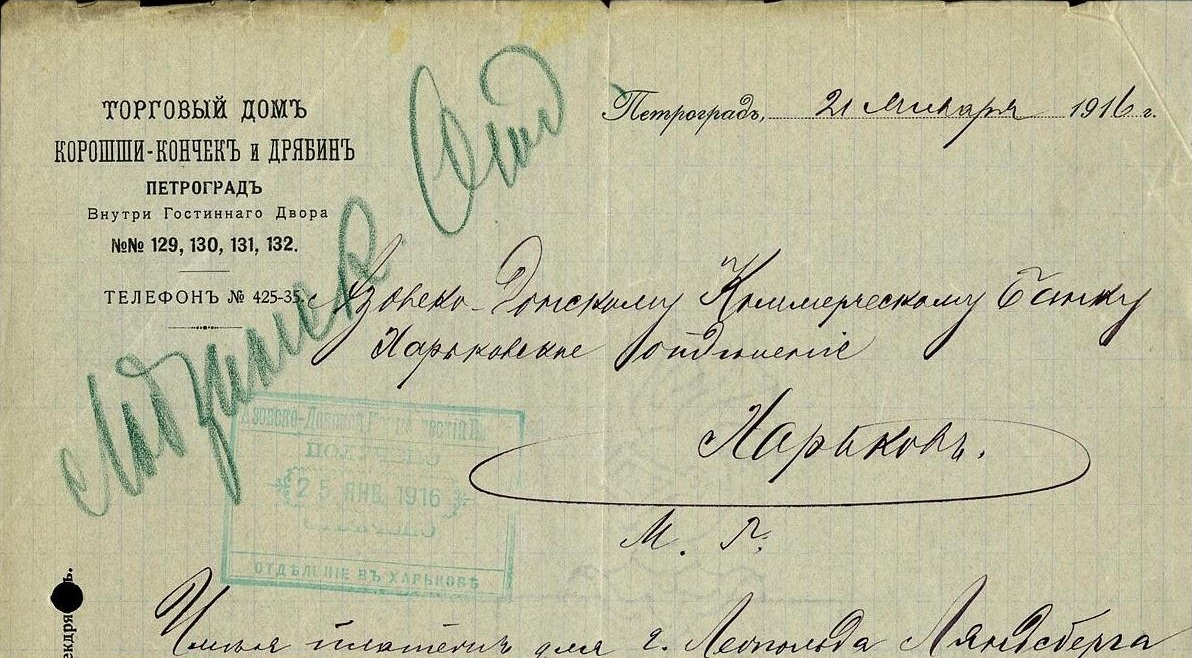 ТОРГОВЫЙ ДОМЪ
КОРОШШИ-КОНЧЕКЪ и ДРЯБИНЪ
ПЕТРОГРАДЪ
Внутри Гостиннаго Двора
№№ 129, 130, 131, 132.
ТЕЛЕФОНЪ № 425-35.
Петроградъ, 21 Января 1916 г.
Азовско-Донскому Коммерческому Банку
Харьковское отдѣленіе
Харьковъ.
М. Г.
Азовско-Донской
25 ЯНВ. 1916
ОТДѢЛЕНІЕ ВЪ ХАРЬКОВѢ
для г. Леопольда Ляндсберга